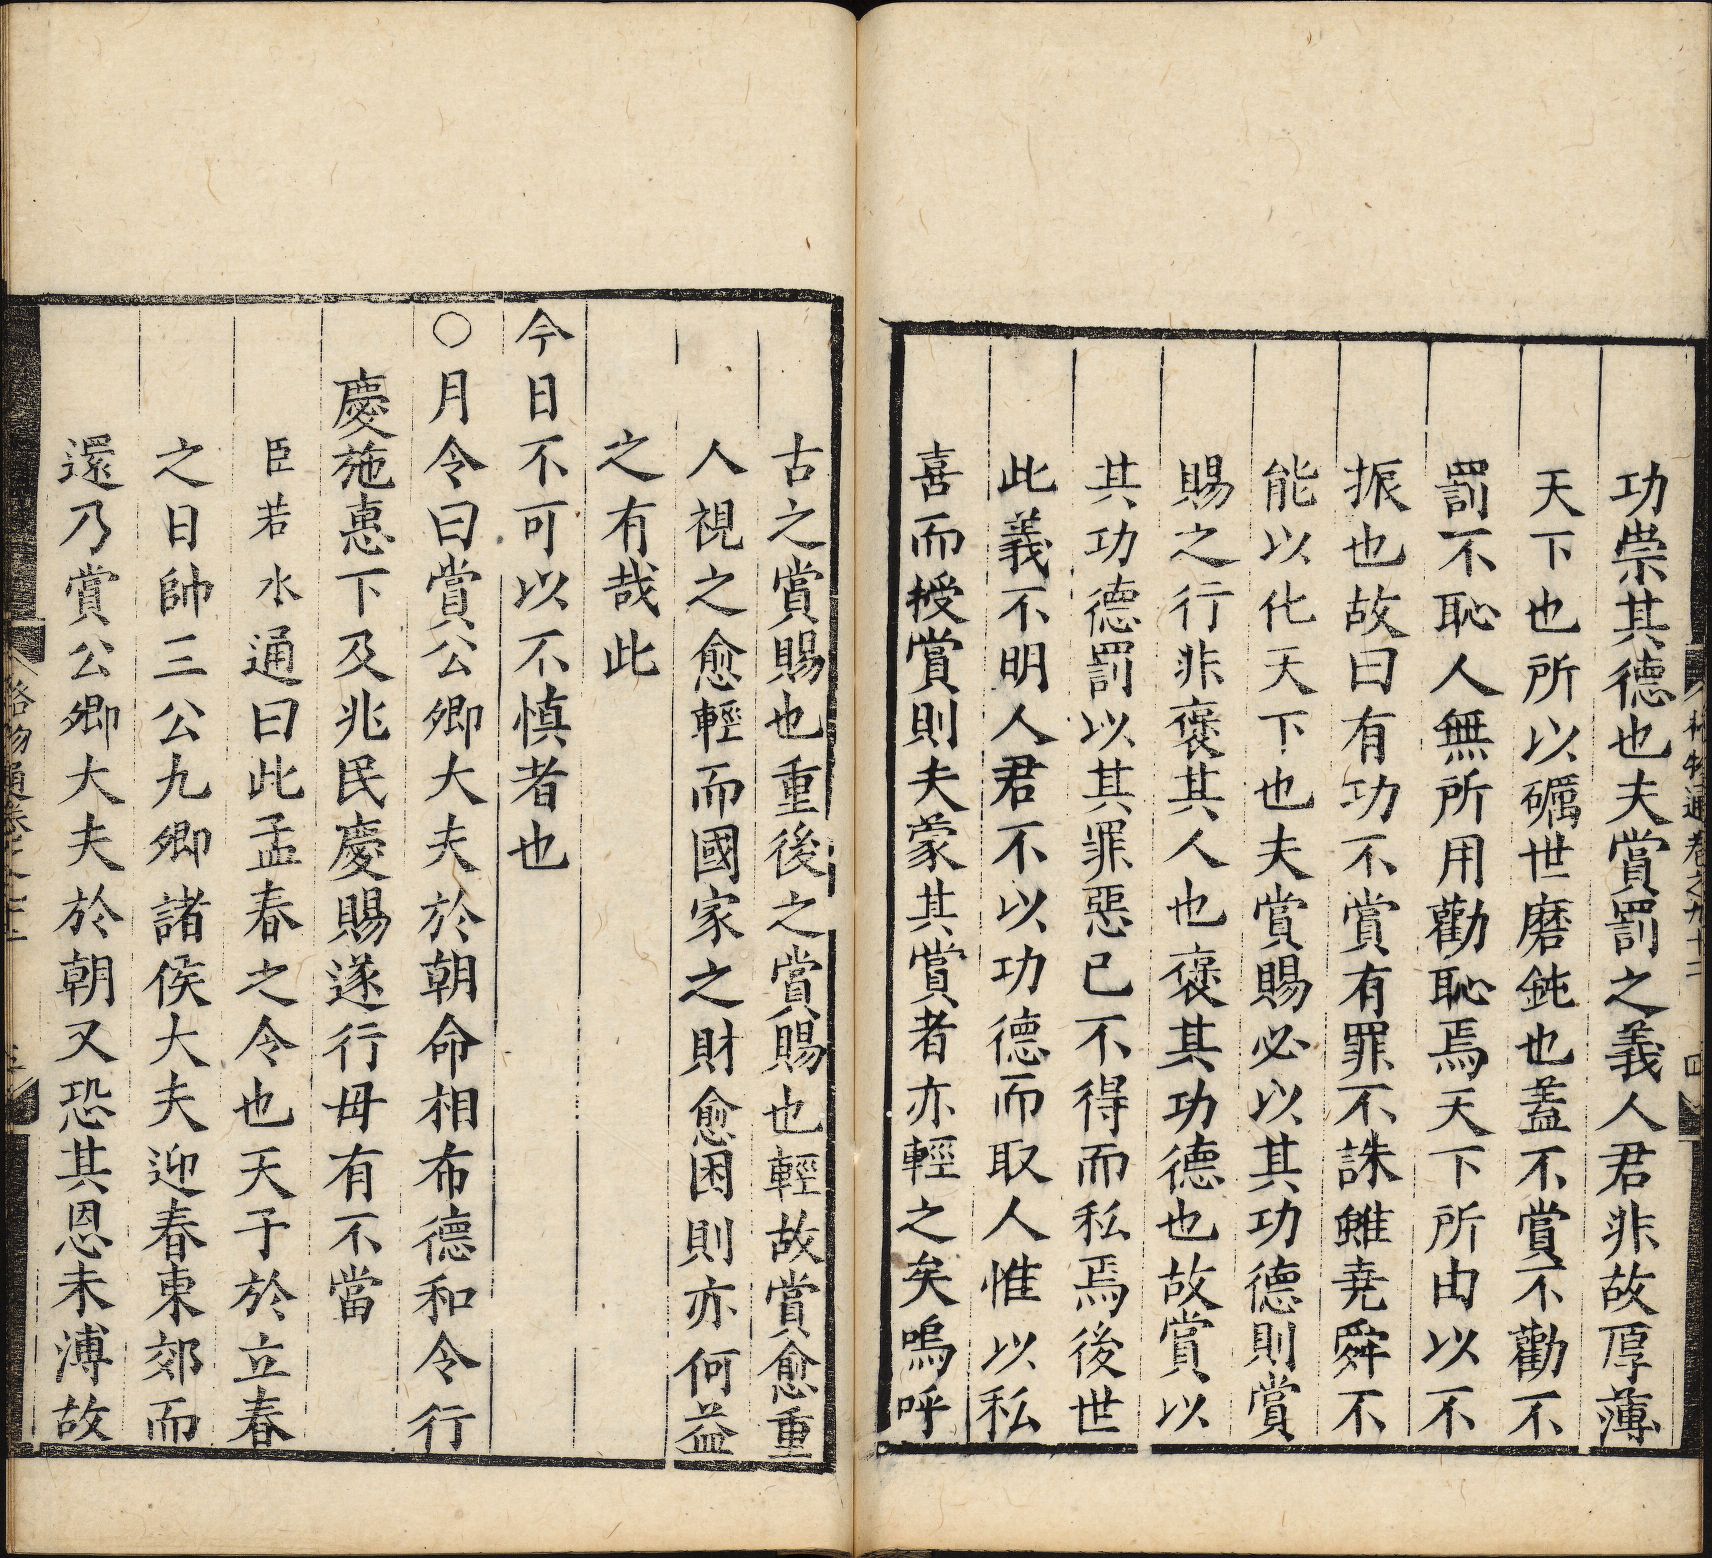 功崇其德也夫賞罰之義人君非故厚薄
天下也所以礪世磨鈍也蓋不賞不勸不
罰不恥人無所用勸恥焉天下所由以不
振也故曰有功不賞有罪不誅雖堯舜不
能以化天下也夫賞賜必以其功德則賞
賜之行非褒其人也褒其功德也故賞以
其功德罰以其罪惡已不得而私焉後世
此義不明人君不以功德而取人惟以私
喜而授賞則夫蒙其賞者亦輕之矣嗚呼
格物通卷之九十二
四
古之賞賜也重後之賞賜也輕故賞愈重
人視之愈輕而國家之財愈困則亦何益
之有哉此
今日不可以不慎者也
○月令曰賞公卿大夫於朝命相布德和令行
慶施惠下及兆民慶賜遂行毋有不當
臣若水通曰此孟春之令也天子於立春
之日帥三公九卿諸侯大夫迎春東郊而
還乃賞公卿大夫於朝又恐其恩未溥故
格物通卷之